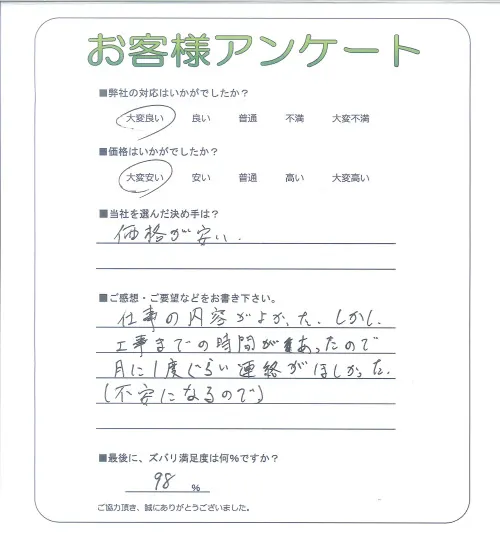 お客様アンケート
■弊社の対応はいかがでしたか？
大変良い 良い 普通 不満 大変不満
■価格はいかがでしたか？
大変安い 安い 普通 高い 大変高い
■当社を選んだ決め手は？
価格が安い.
■ご感想・ご要望などをお書き下さい。
仕事の内容がよかった. しかし.
工事までの時間があったので
月に1度ぐらい連絡がほしかった.
(不安になるので)
■最後に、ズバリ満足度は何％ですか？
98 %
ご協力頂き、誠にありがとうございました。